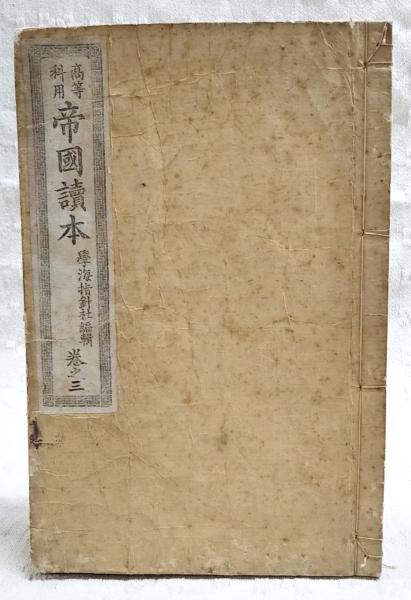 高等
科用
帝國讀本
學海指針社編輯
卷之三